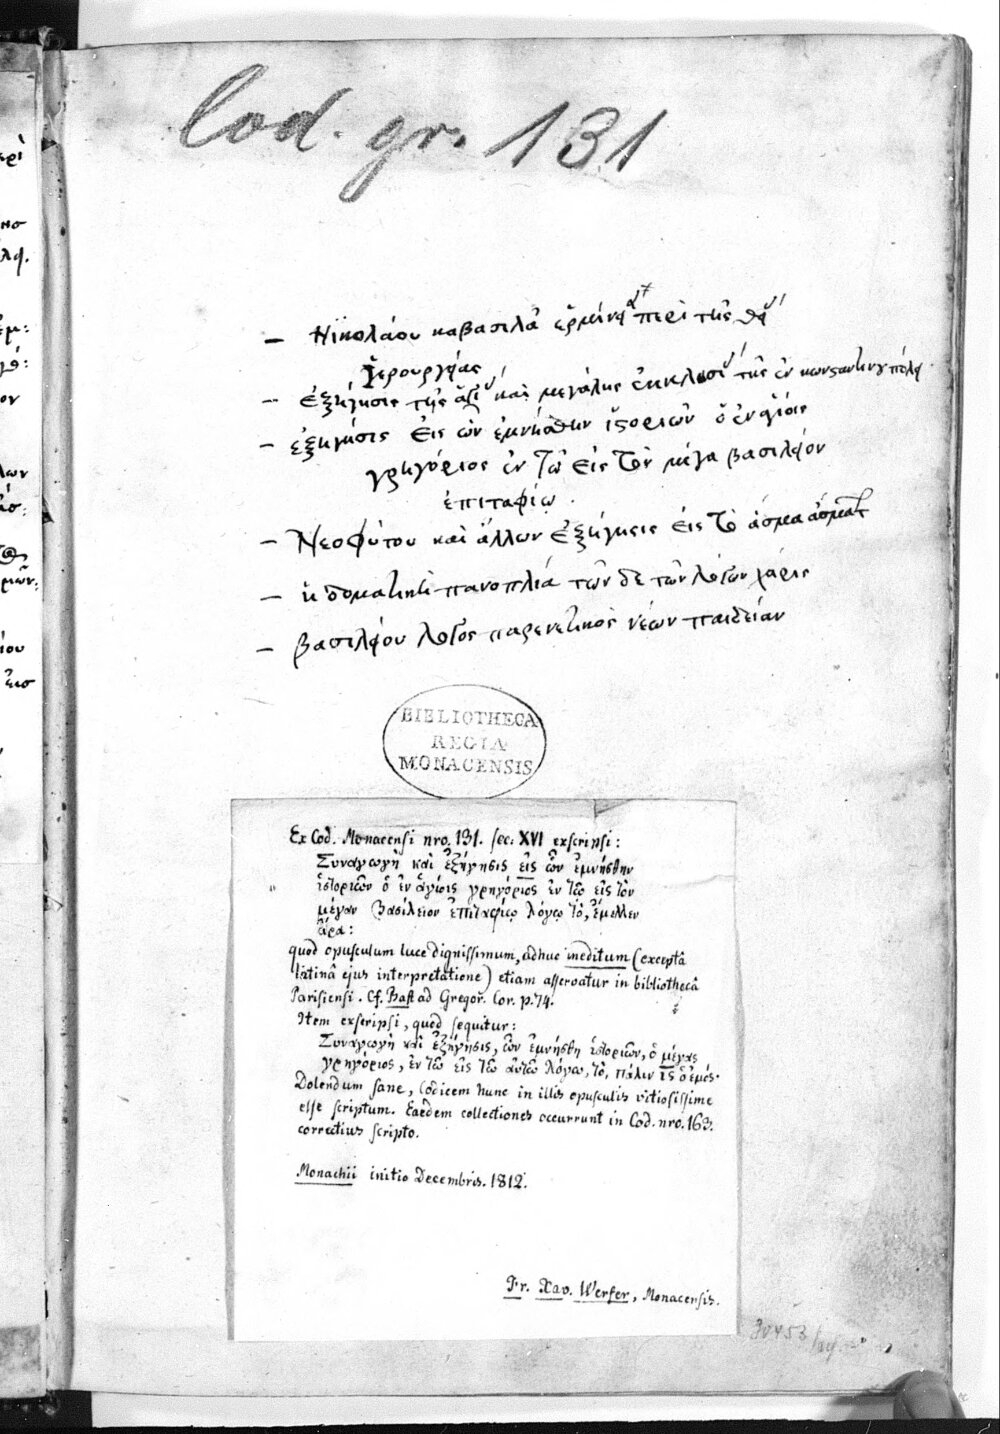 Cod. gr. 131
– Νϊκολάου καβασιλα ἑρμήνεια περὶ τῆς θεί
ἱερουργείας
– ἐξήγησις τῆς ἁγί καὶ μεγάλης ἐκκλησί τῆς ἐν κωνσαντινουπόλει
– ἐξήγησις εἰς ὧν ἐμνήσθην ἱςοριῶν ὁ ἐν ἁγίοις
γρηγόριος ἐν τῶ εἰς τὸν μέγα βασιλείον
ἐπιταφίω.
– Νεοφύτου καὶ ἄλλων ἐξήγησις εἰς τὸ ἄσμα ἀσμάτ
– ἡ δογματικὴ πανοπλιά τῶν δε τῶν λόγων χάρις
– βασιλείου λόγος παρενετικὸς νέων παιδείαν
BIBLIOTHECA
REGIA
MONACENSIS
Ex Cod. Monacensi nro. 131. sec. XVI exscripsi:
Συναγωγὴ καὶ ἐξήγησις εἰς ὧν ἐμνήσθην
ἱστοριῶν ὁ ἐν ἁγίοις γρηγόριος ἐν τῶ εἰς τὸν
μέγαν Βασίλειον ἐπιταφίῳ λόγῳ τὸ, ἔμελλεν
ἄρα:
quod opusculum luce dignissimum, adhuc ineditum (exceptâ
latinâ ejus interpretatione) etiam asservatur in bibliothecâ
Parisiensi. Cf. Bast ad Gregor. Cor. p. 74.
Item exscripsi, quod sequitur:
Συναγωγὴ καὶ ἐξήγησις, ὧν ἐμνήσθη ἱστοριῶν, ὁ μέγας
γρηγόριος, ἐν τῶ εἰς τῶ αὐτῶ λόγω, τὸ, πάλιν ἰς ὁ ἐμός.
Dolendum sane, Codicem hunc in illis opusculis vitiosissime
esse scriptum. Eaedem collectiones occurrunt in Cod. nro. 163.
correctius scripto.
Monachii initio Decembris. 1812.
Fr. Xav. Werfer, Monacensis.